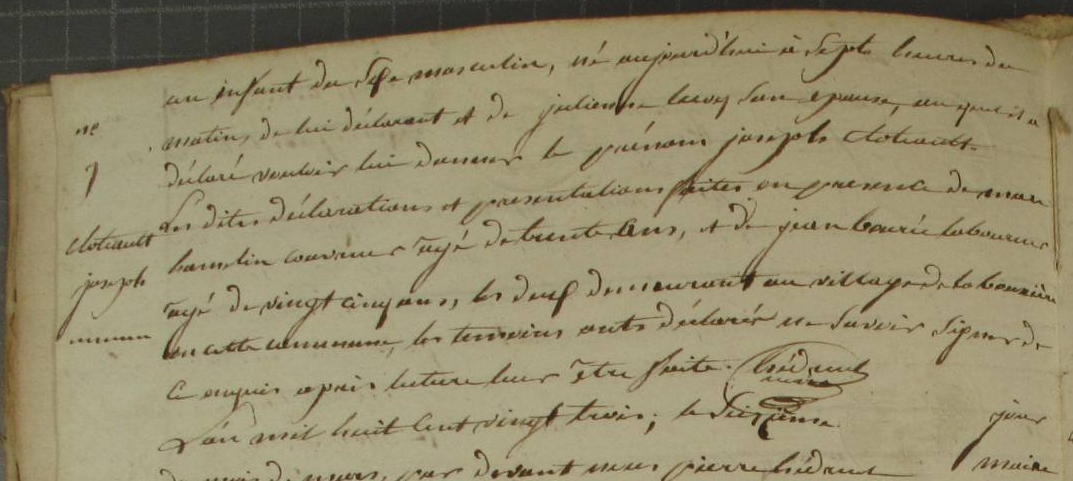 un enfant du sexe masculin, né aujourd'hui à sept heures du
matin, de lui déclarant et de julienne leroy son epouse, au quel il a
déclaré vouloir lui donner le prénom joseph clotiault.
Les dites déclarations et presentations faites en presence de
hamelin couvreur âgé de trente ans, et de jean laboureur
âgé de vingt cinq ans, les deux demeurant au village de la
en cette commune, les temoins onts déclarés ne savoir signer de
ce enquis apres lecture leur être faite.
maire
L'an mil huit cent vingt trois, le seizieme jour
du mois de mars, par devant nous pierre maire
n°
7
clotiault
joseph